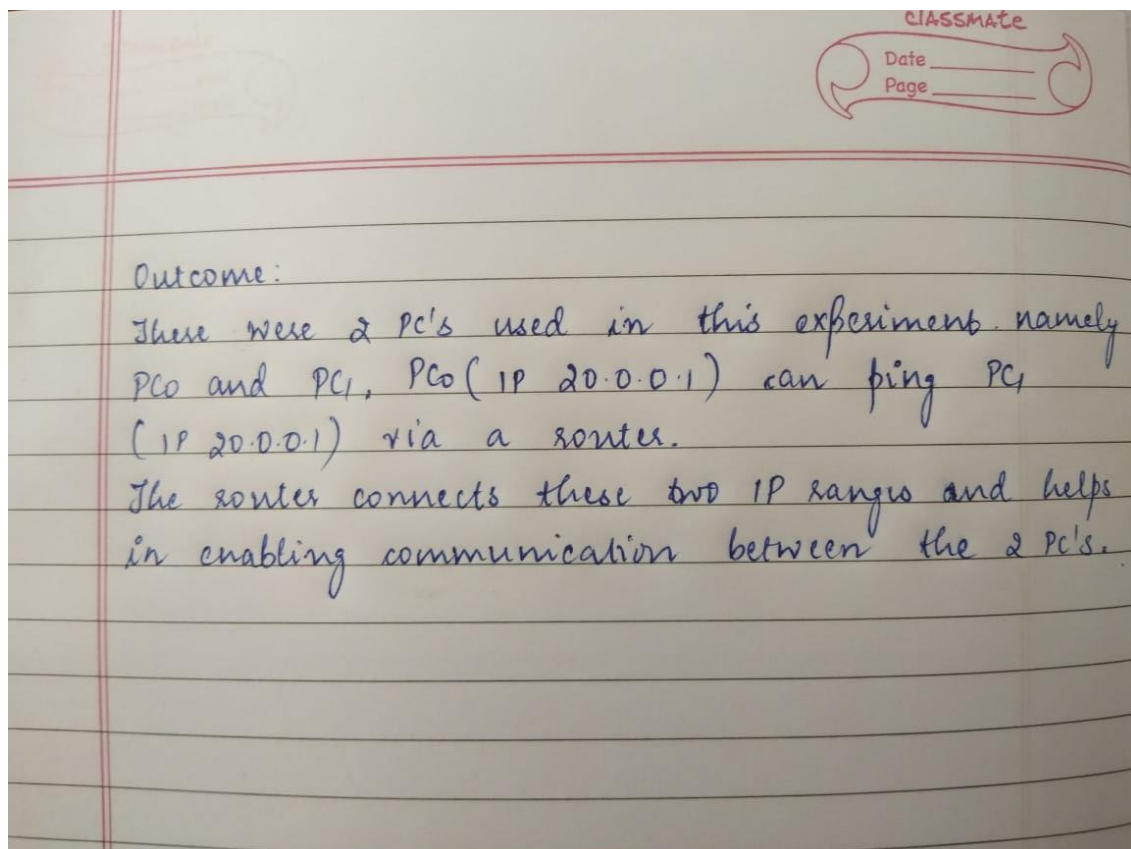 CLASSMATE
Date
Page
Outcome:
There were 2 PC's used in this experiment. namely
PC0 and PC1, PC0 ( IP 20.0.0.1) can ping PC1
( IP 20.0.0.1) via a router.
The router connects these two IP ranges and helps
in enabling communication between the 2 PC's.